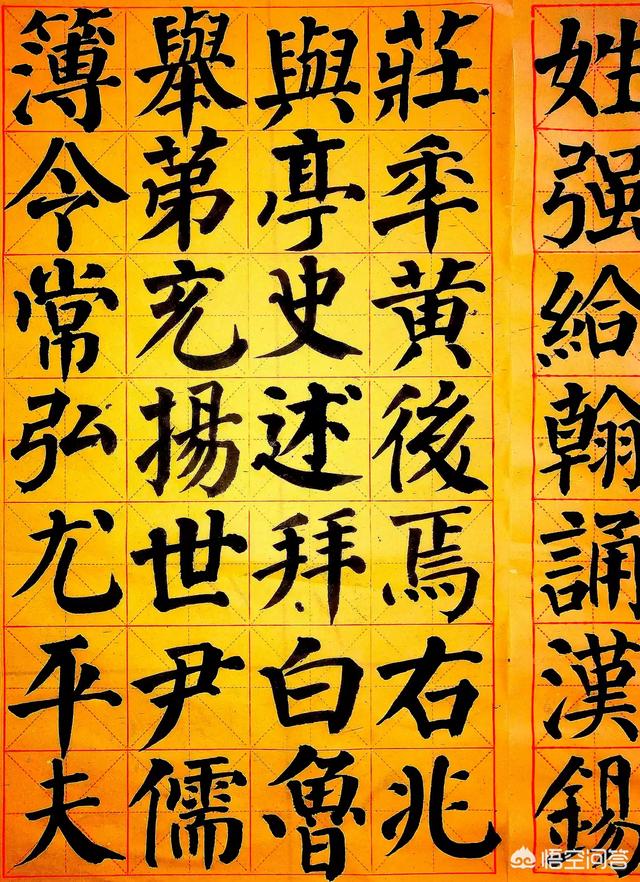 姓强給翰誦漢錫
莊年黄後焉右兆
與亭史述拜白魯
舉苐充揚世尹儒
簿令常弘尤平夫
悟空问答